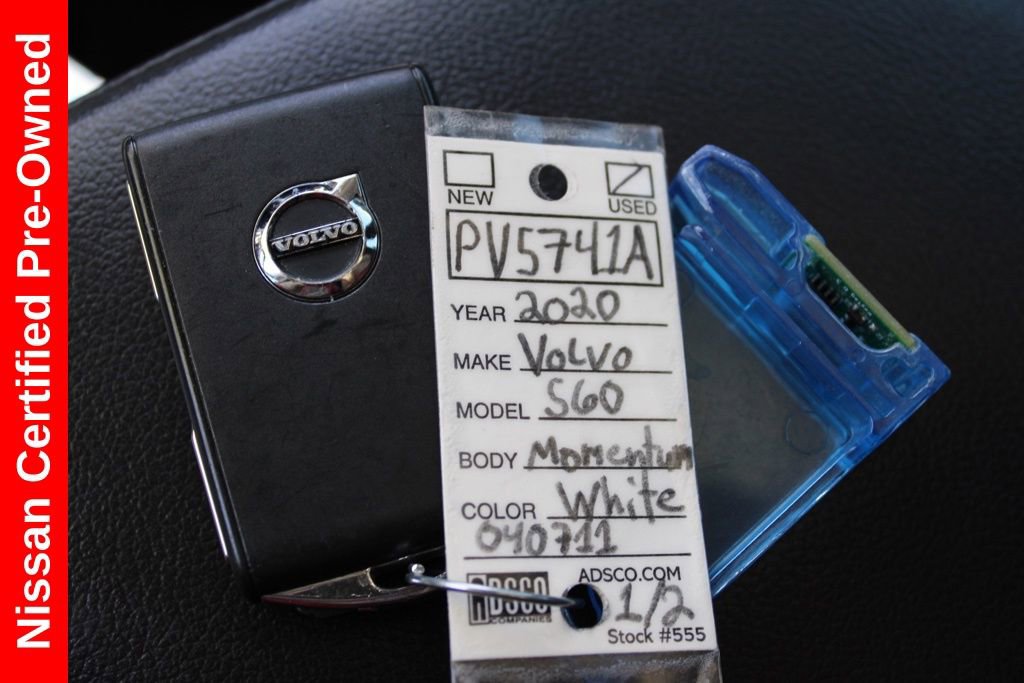 Nissan Certified Pre-Owned
VOLVO
NEW
USED
PV5741A
YEAR 2020
MAKE VOLVO
MODEL S60
BODY Momentum
COLOR White
040711
ADSCO
COMPANIES
ADSCO.COM
1/2
Stock #555